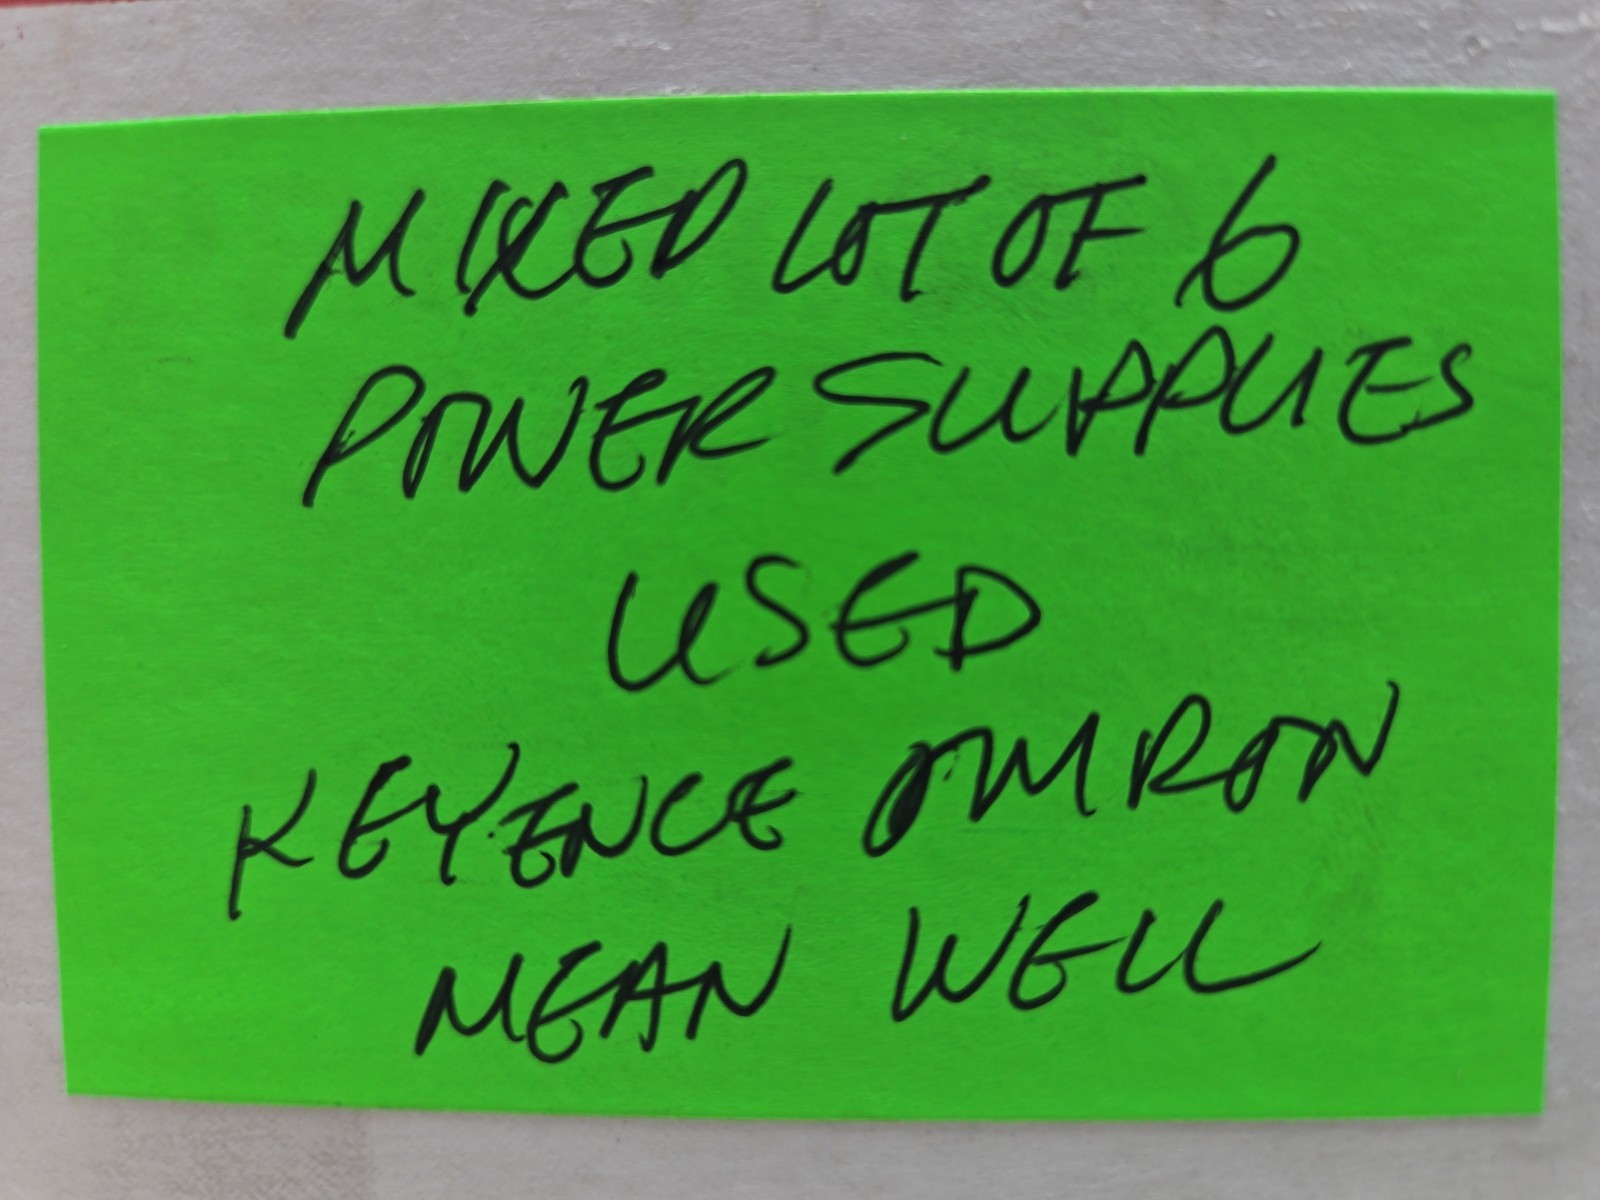 MIXED LOT OF 6
POWER SUPPLIES
USED
KEYENCE OMRON
MEAN WELL